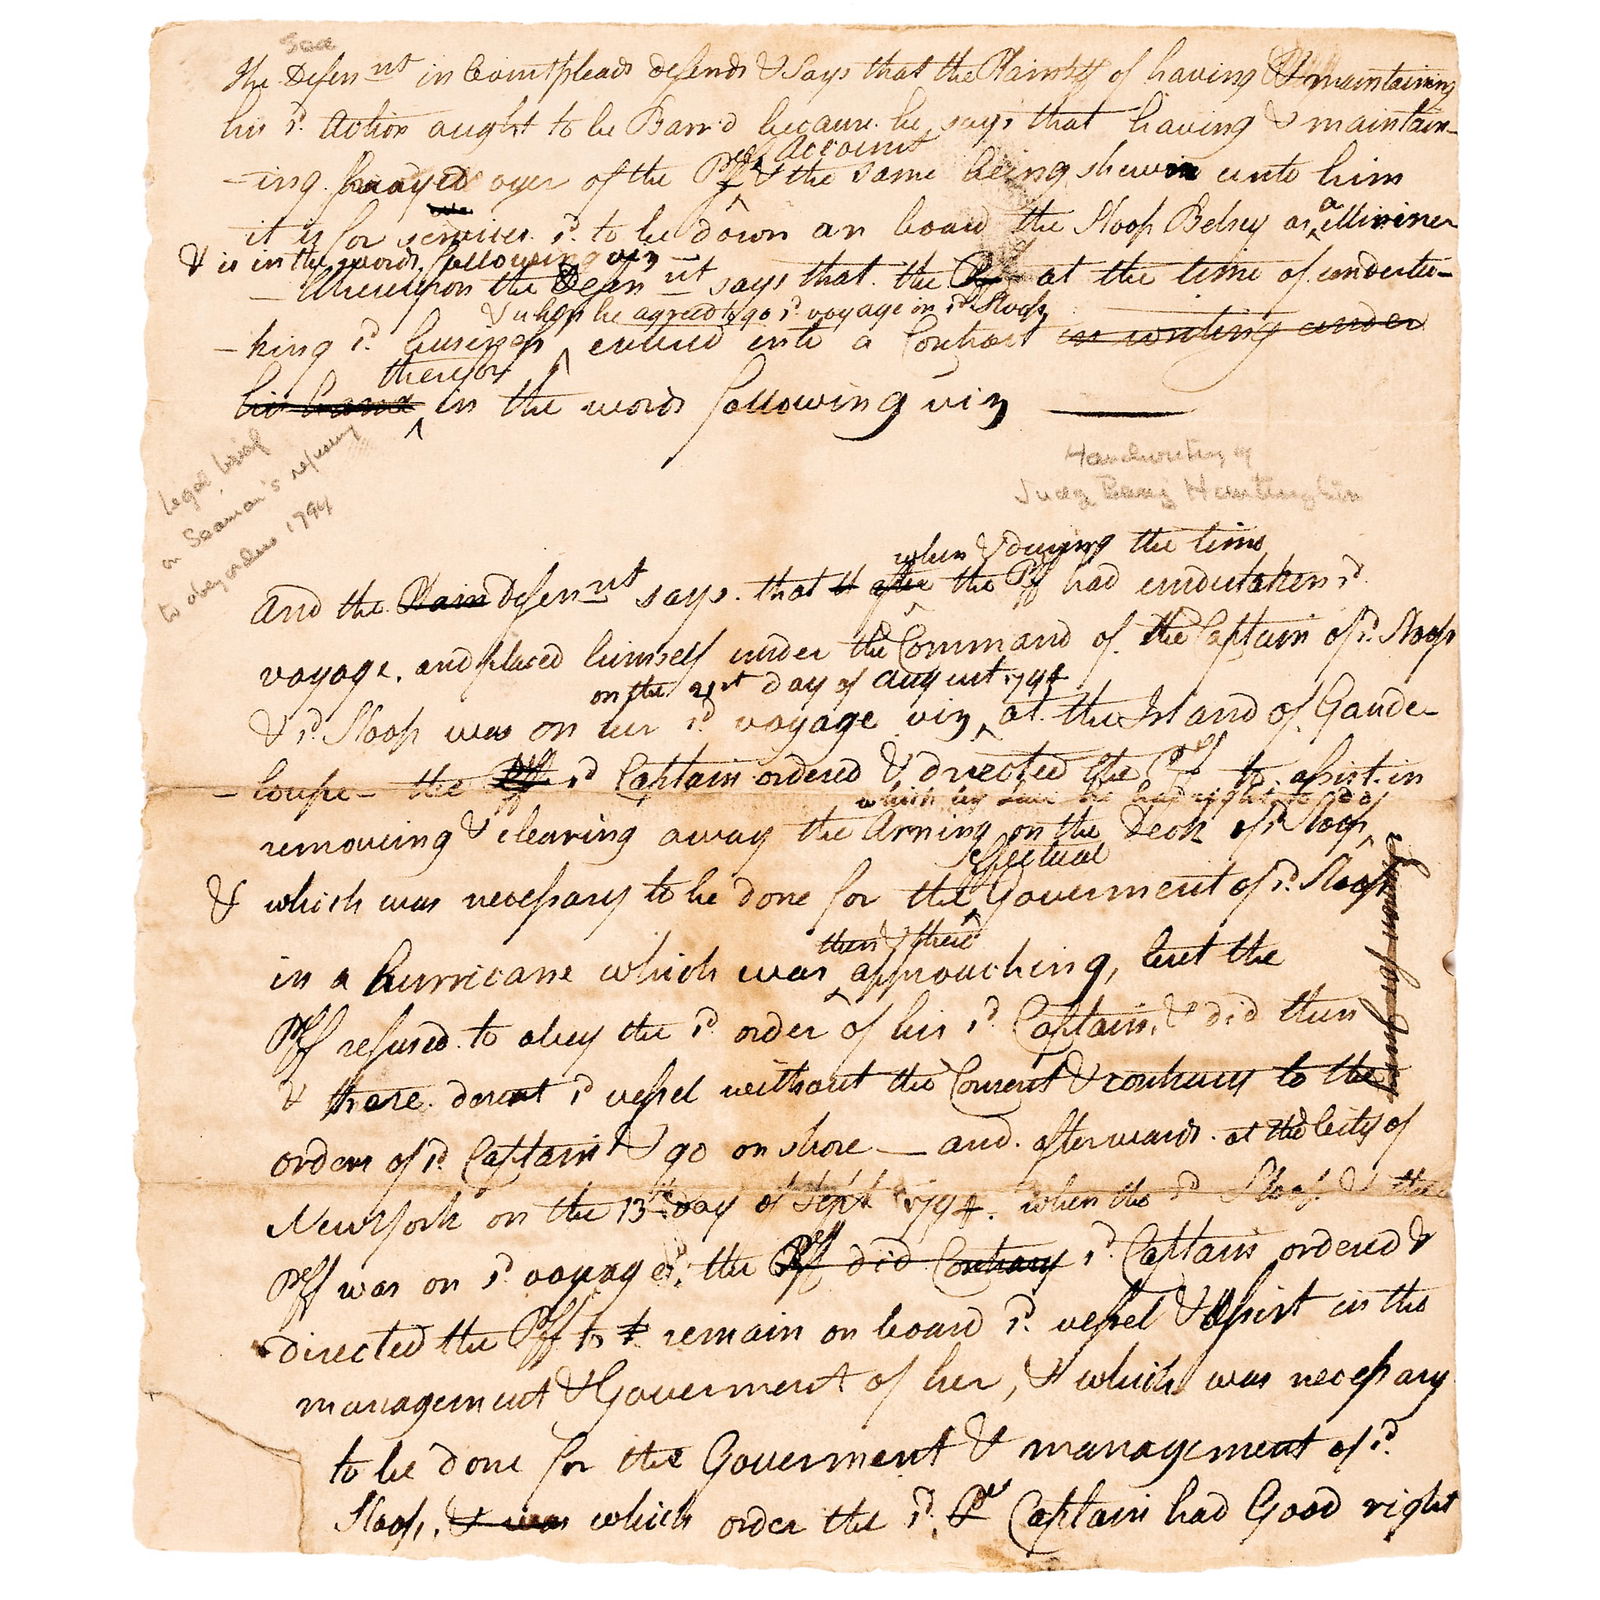 The Defen nt in Court pleads defends & Says that the Plaintiff of having & maintaining
his sd. Action aught to be Barr'd because he says that having & maintain-
account
-ing prayed oyer of the Plf & the same being shewn unto him
it is for services sd. to be down on board the Sloop Betsey as a Mariner
& is in the words following viz
-Whereupon the Defen nt says that the Plf at the time of underta-
& when he agreed to go sd. voyage in sd. Sloop
-king sd. business entered into a Contract in writing under
therefor
his hand in the words following viz
Legal brief
on Seaman's refusing
to obey orders 1794
Handwriting of
Judg Benj Huntington
when & during the time
and the Plain Defen nt says that after the Plf had undertaken sd.
voyage and placed himself under the Command of the Captain of sd. Sloop
on the 21st day of August 1794
& sd. Sloop was on her sd. voyage viz at the Island of Gaude-
-loupe - the Plf sd Captain ordered & directed the Plf to assist in
which he had right to do
removing & clearing away the Arning on the Deck of sd Sloop
effectual
& which was necessary to be done for the Goverment of sd. Sloop
then & there
in a hurricane which was approaching, but the
Plf refused to obey the sd order of his sd Captain, & did then
& there desert sd vessel without the Consent & contrary to the
orders of sd. Captain & go on shore - and afterwards at the City of
New York on the 13th Day of Sept 1794. when the sd Sloop & the
Plf was on sd voyage, the Plf did Contrary sd. Captain ordered &
directed the Plf to remain on board sd. vessel & Assist in the
management & Goverment of her, & which was necessary
to be done for the Goverment & management of sd.
Sloop, & was which order the sd. Captain had Good right